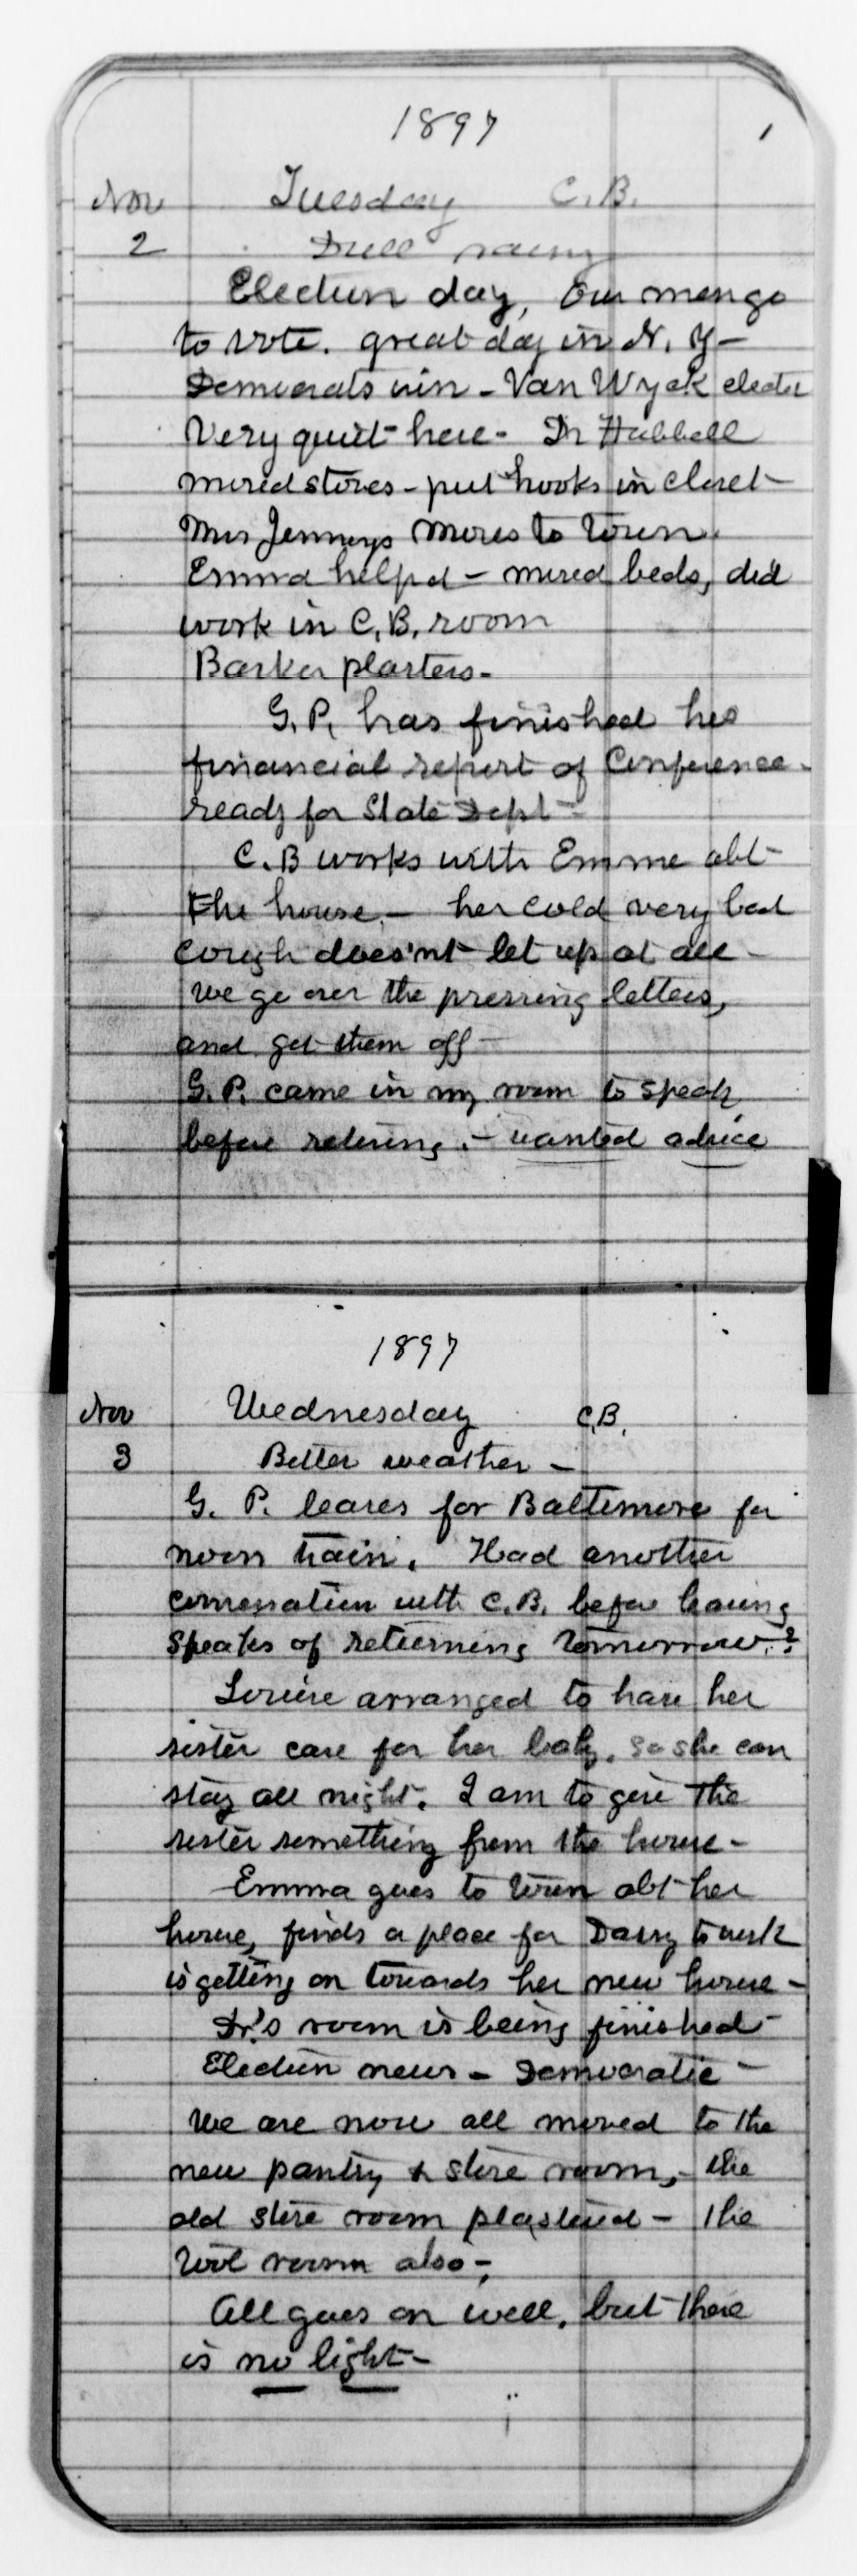 1897
1
Nov Tuesday C.B.
2 Dull rainy
Election day, Our men go
to vote. great day in N. Y –
Democrats win – Van Wyck elected
Very quiet here – Dr Hubbell
moved stoves – put hooks in closet –
Mrs Jenneys moves to town.
Emma helpd – moved beds, did
work in C.B. room
Barker plasters –
G.P. has finished his
financial report of Conference –
ready for State Dept –
C.B works with Emma abt
the house. – her cold very bad
cough does'nt let up at all –
We go over the pressing letters,
and get them off –
G.P. came in my room to speak
before retiring. – wanted advice
1897
Nov Wednesday C.B.
3 Better weather –
G. P. leaves for Baltimore for
noon train. Had another
conversation with C.B. before leaving
speaks of returning tomorrow.?
Louise arranged to have her
sister care for her baby. so she can
stay all night. I am to give the
sister something from the house –
Emma goes to town abt her
house, finds a place for to work
is getting on towards her new house –
Dr.'s room is being finished –
Election news – Democratic –
We are now all moved to the
new pantry & store room, – the
old store room plastered – the
tool room also –
All goes on well, but there
is no light –